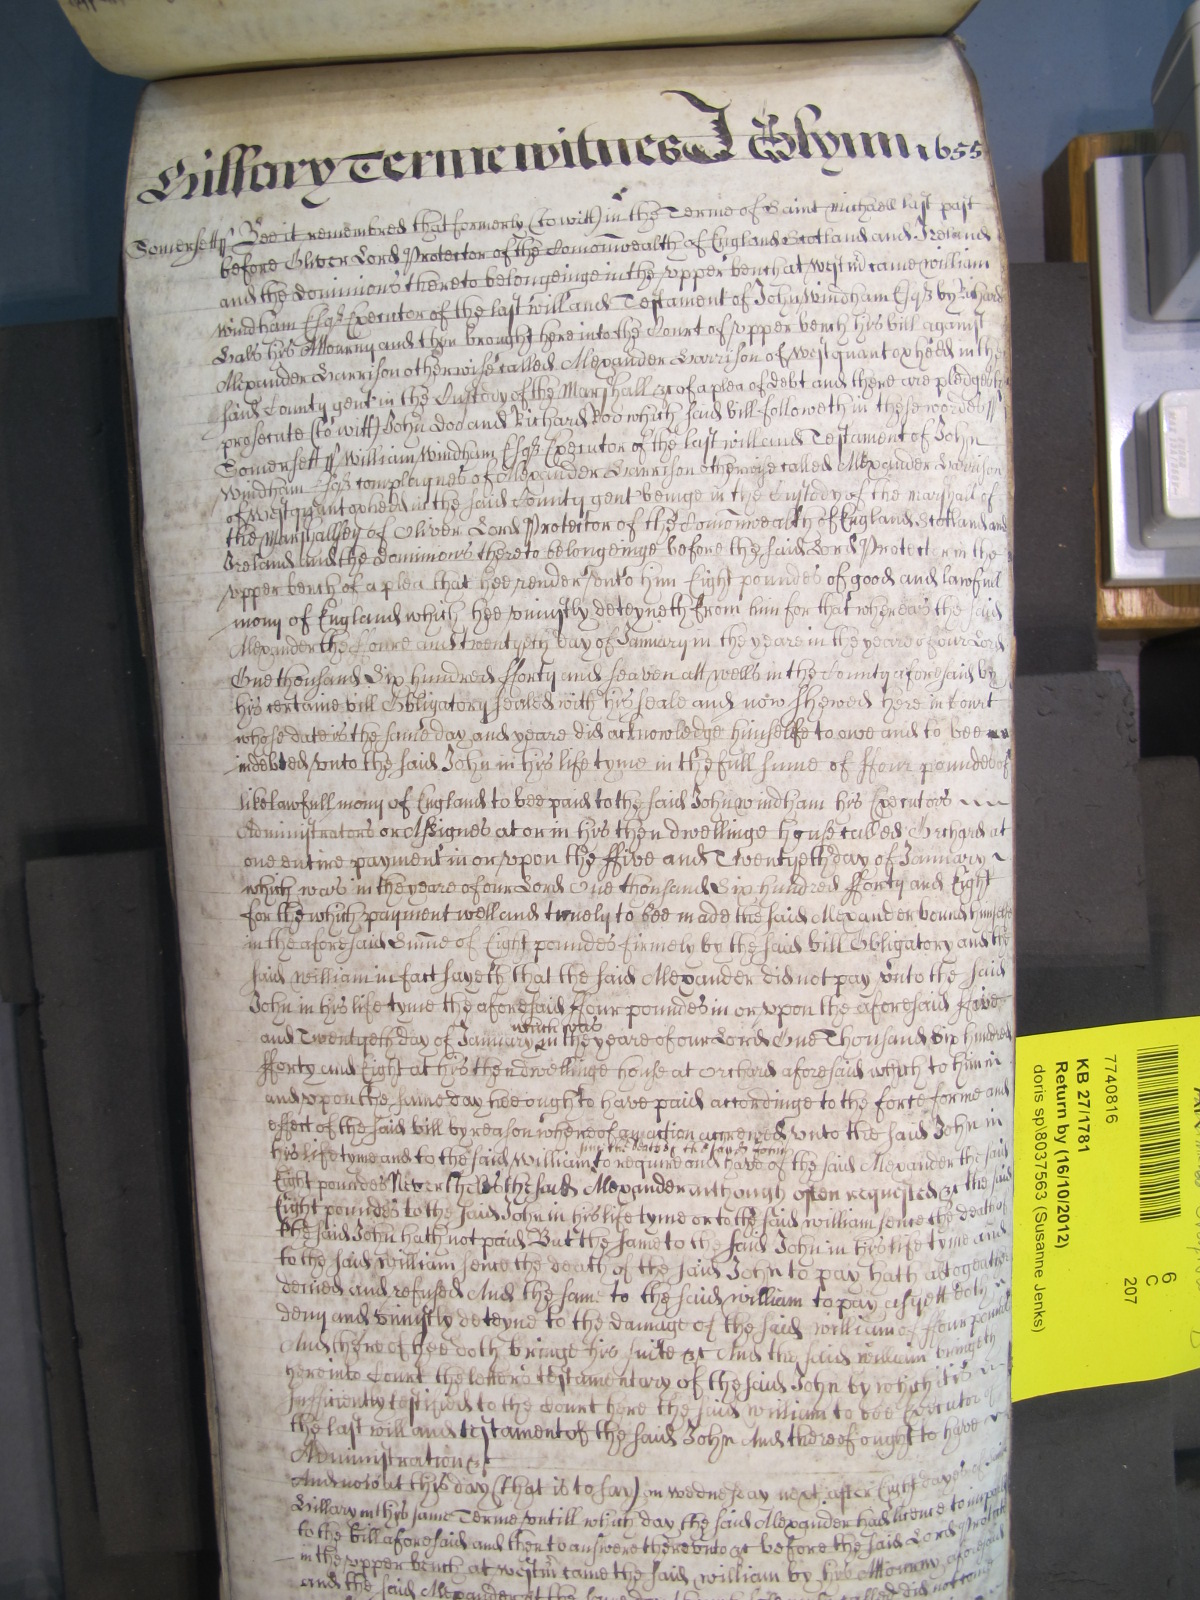 Hillary Terme witnes J Glynn 1655
Somersett ss Bee it remembred that formerly (to witt) in the Terme of Saint Michaell last past
before Oliver Lord Protector of the Comonwealth of England Scotland and Ireland
and the dominions thereto belongeinge in the upper bench at Westm came William
Windham Esqr Executor of the last will and Testament of John Windham Esqr by Richard
his Attorny and then brought here into the Court of upper bench his bill against
Alexander Garrison otherwise called Alexander Garrison of Westquantoxhed in the
said County gent in the Custody of the Marshall &c of a plea of debt and there are pledges to
prosecute (to witt) John doo and Richard Roo which said bill followeth in these wordes ss
Somersett ss William Windham Esqr Executor of the last will and Testament of John
Windham Esqr complaynes of Alexander Garrison otherwise called Alexander Garrison
of Westquantoxhed in the said County gent beinge in the Custody of the marshall of
the Marshallsey of Oliver Lord Protector of the Comonwealth of England Scotland and
Ireland and the dominions thereto belongeinge before the said Lord Protector in the
upper bench of a plea that hee render unto him Eight poundes of good and lawfull
mony of England which hee uniustly deteyneth from him for that whereas the said
Alexander the foure and twentyeth day of January in the yeare in the yeare of our Lord
One thousand Six hundred fforty and seaven att wells in the County aforesaid by
his certaine bill Obligatory sealed with his seale and now shewed here in Court
whose date is the same day and yeare did acknowledge himselfe to owe and to bee
indebted unto the said John in his life tyme in the full sume of ffour poundes of
like lawfull mony of England to bee paid to the said John windham his Executors
Administrators or Assignes at or in his then dwellinge house called Orchard at
one entire payment in or upon the ffive and Twentyeth day of January
which was in the yeare of our Lord One thousand Six hundred fforty and Eight
for the which payment well and truely to bee made the said Alexander bound himselfe
in the aforesaid Sume of Eight poundes firmely by the said bill Obligatory and the
said William in fact sayeth that the said Alexander did not pay unto the said
John in his life tyme the aforesaid ffour poundes in or upon the aforesaid ffive
and Twentyeth day of January which was in the yeare of our Lord One Thousand Six hundred
fforty and Eight at his then dwellinge house at Orchard aforesaid which to him in
and upon the same day hee ought to have paid accordinge to the force forme and
effect of the said bill by reason whereof an action accrewed unto the said John in
his life tyme and to the said William since the death of the said John to require and have of the said Alexander the said
Eight poundes Neverthelesse the said Alexander although often requested &c the said
Eight poundes to the said John in his life tyme or to the said william sence the death of
the said John hath not paid But the same to the said John in his life tyme and
to the said william sence the death of the said John to pay hath altogeather
denied and refused And the same to the said william to pay as yett doth
deny and uniustly deteyne to the damage of the said william of ffour poundes
And thereof hee doth bringe his suite &c And the said william bringeth
here into Court the letters testamentary of the said John by which it is
sufficiently testified to the Court here the said william to bee Executor
the last will and testament of the said John And thereof ought to have
Administration &c
And now at this day (that is to say) on wednesday next after Eight dayes
Hillary in this same Terme untill which day the said Alexander had licence to imparle
to the bill aforesaid and then to answere thereunto &c before the said Lord Protector
in the upper bench at westm came the said william by his Attorney aforesaid
and the said Alexander at the same day called did not come
7740816
KB 27/1781
Return by (16/10/2012)
doris sp\8037563 (Susanne Jenks)
6
C
207